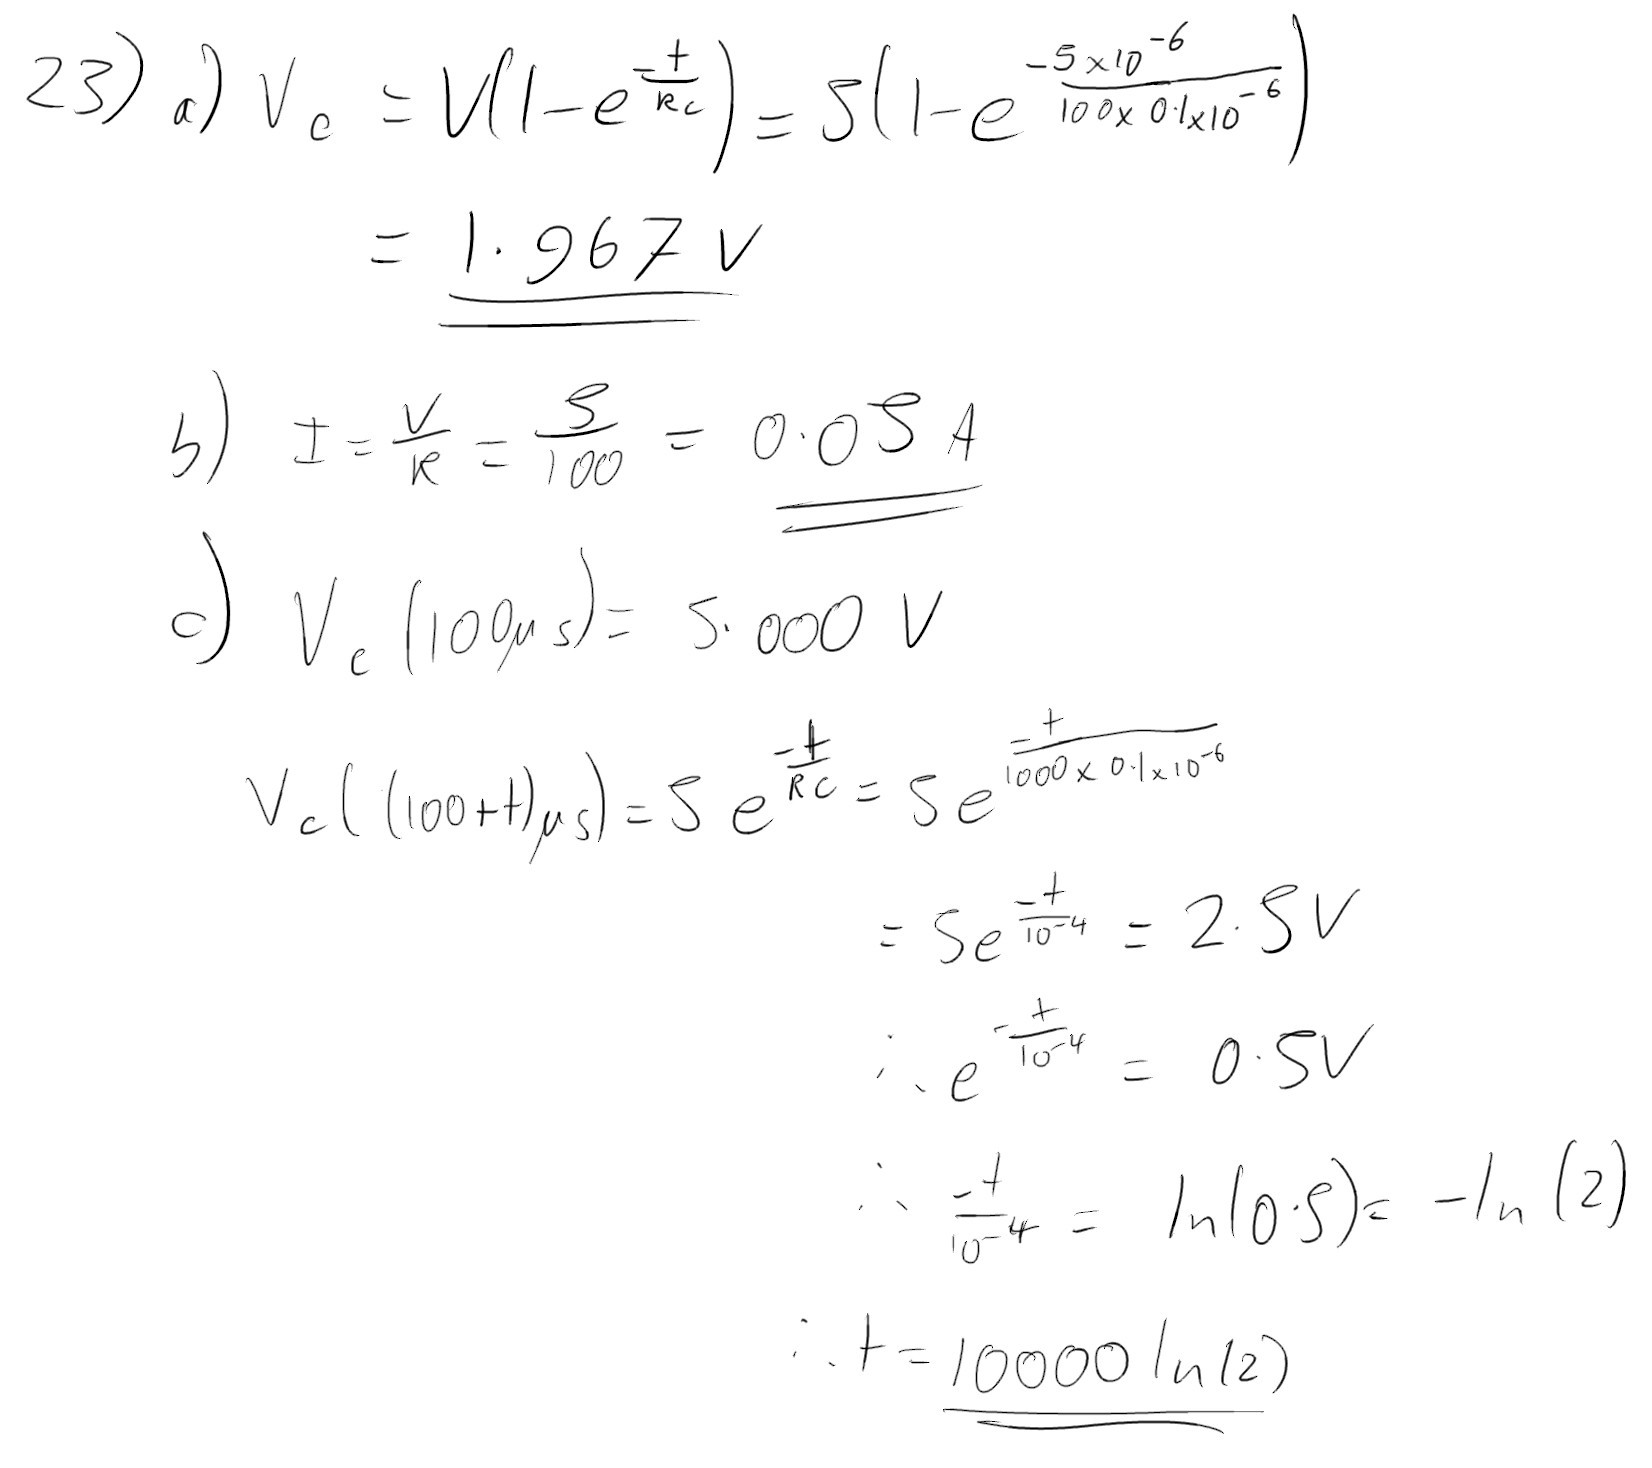 23) a) Vc = V(1-e^(-t/RC)) = 5(1-e^(-5×10^-6/(100×0.1×10^-6)))
= 1.967 V
b) I = V/R = 5/100 = 0.05 A
c) Vc(100μs) = 5.000 V
Vc((100+t)μs) = 5e^(-t/RC) = 5e^(-t/(1000×0.1×10^-6))
= 5e^(-t/10^-4) = 2.5V
∴ e^(-t/10^-4) = 0.5V
∴ -t/10^-4 = ln(0.5) = -ln(2)
∴ t = 10000 ln(2)